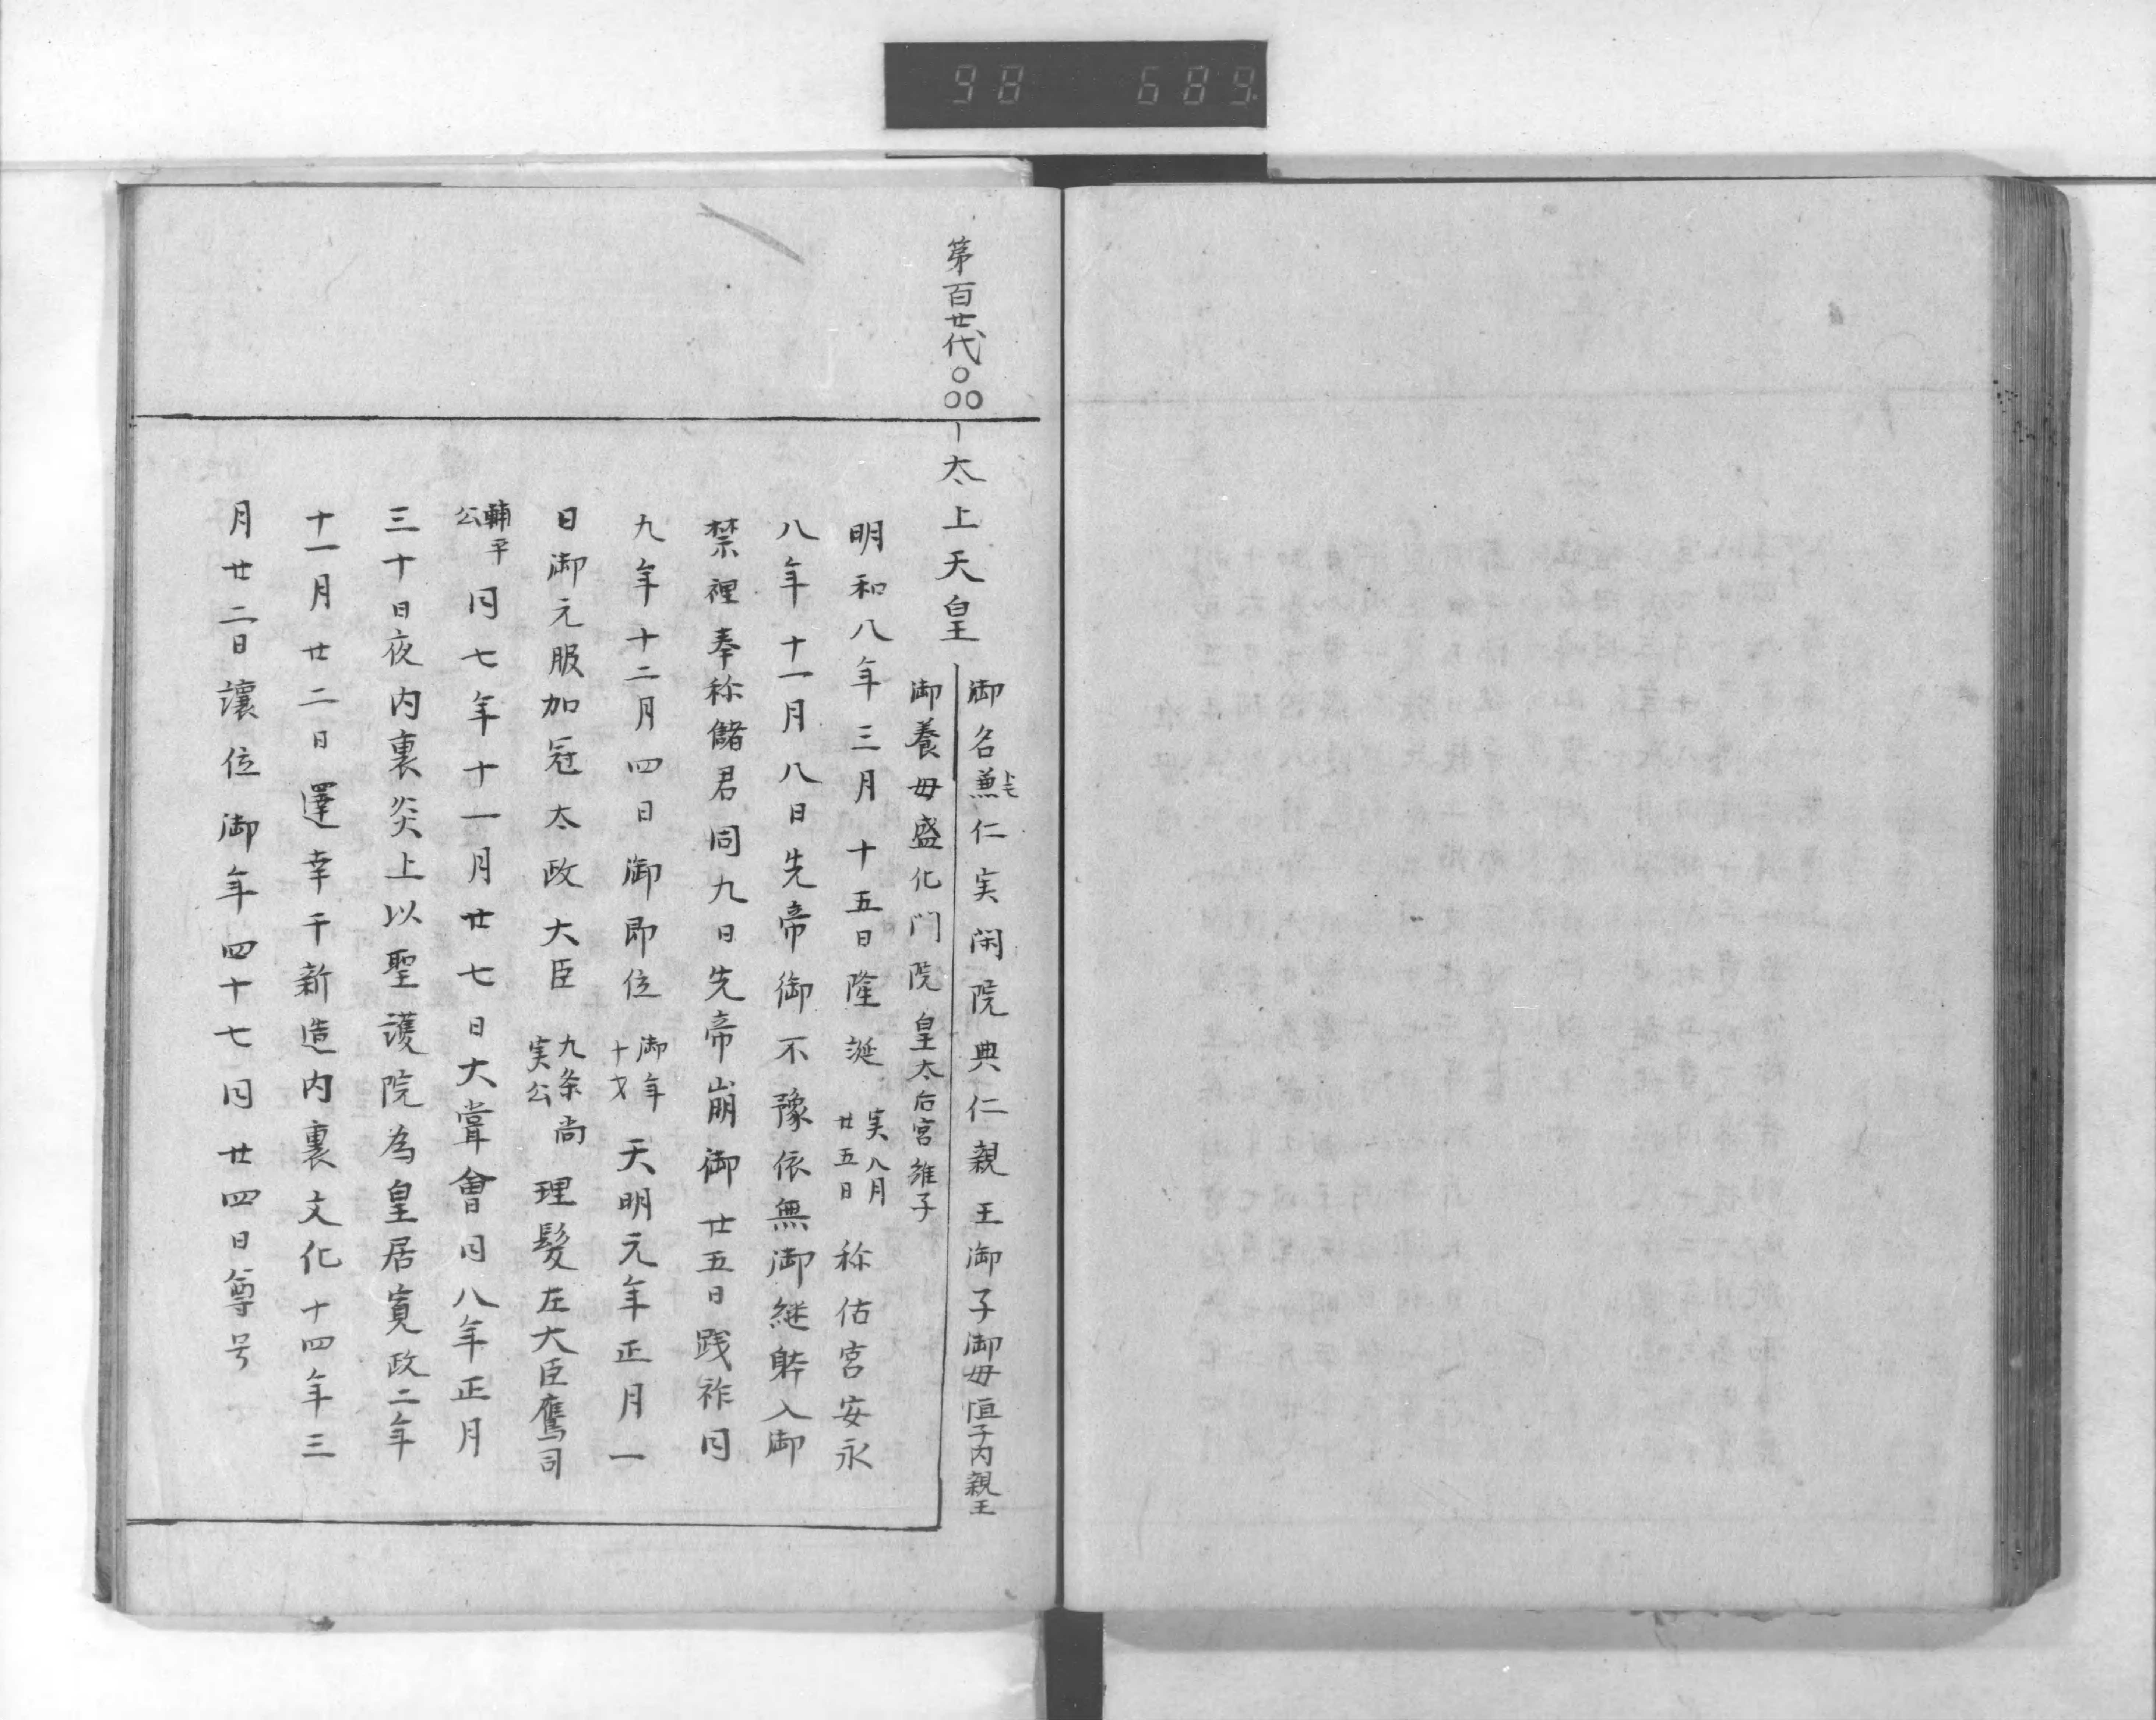 98 689
第百廿代○○○
太上天皇
御名兼仁実閑院典仁親王御子御母恒子内親王
御養母盛化門院皇太后宮維子
明和八年三月十五日隆誕 実八月廿五日 称佑宮安永
八年十一月八日先帝御不豫依無御継躰入御
禁裡奉称儲君同九日先帝崩御廿五日践祚同
九年十二月四日御即位 御年十才 天明元年正月一
日御元服加冠太政大臣 九条尚実公 理髪左大臣鷹司
輔平公 同七年十一月廿七日大甞會同八年正月
三十日夜内裏炎上以聖護院為皇居寛政二年
十一月廿二日還幸于新造内裏文化十四年三
月廿二日譲位御年四十七同廿四日尊号